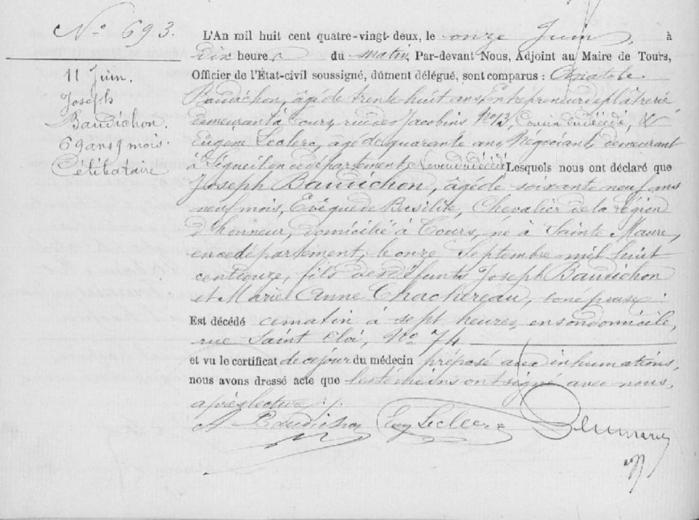 N° 693.
11 Juin.
Joseph
Baudichon.
69 ans 9 mois.
Célibataire
L'An mil huit cent quatre-vingt-deux, le onze Juin, à
Dix heures du matin, Par-devant Nous, Adjoint au Maire de Tours,
Officier de l'État-civil soussigné, dûment délégué, sont comparus : Anatole
Baudichon, âgé de trente huit ans, Entrepreneur de plâtrerie
demeurant à Tours, rue des Jacobins N° 13, Cousin du décédé, &
Eugène Leclerc, âgé de quarante ans, Négociant, demeurant
à Ligueil en ce département, neveu du décédé Lesquels nous ont déclaré que
Joseph Baudichon, âgé de soixante neuf ans
neuf mois, Evêque de Basilite, Chevalier de la légion
d'honneur, domicilié à Tours, né à Sainte Maure,
en ce département, le onze Septembre mil huit
cent douze, fils des défunts Joseph Baudichon
et Marie Anne Chachereau, son épouse :
Est décédé ce matin à sept heures, en son domicile,
rue Saint Eloi, N° 74
et vu le certificat de ce jour du médecin préposé aux inhumations,
nous avons dressé acte que les témoins ont signé avec nous,
après lecture :
A Baudichon Eug Leclerc